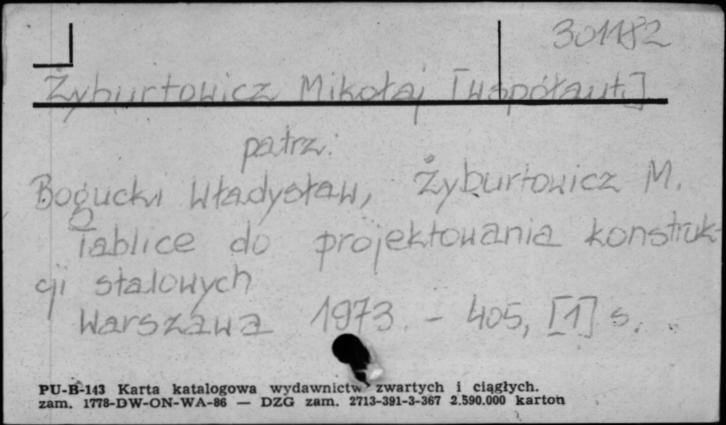 301182
Żyburtowicz Mikołaj [współaut.]
patrz:
Bogucki Władysław, Żyburtowicz M.
Tablice do projektowania konstruk-
cji stalowych
Warszawa 1973. - 405, [1] s.
PU-B-143 Karta katalogowa wydawnictw zwartych i ciągłych.
zam. 1778-DW-ON-WA-86 — DZG zam. 2713-391-3-367 2.590.000 karton